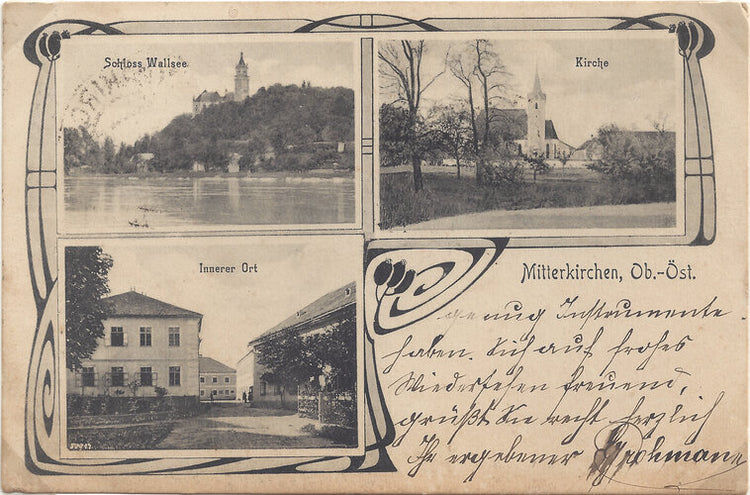 Schloss Wallsee
Kirche
Innerer Ort
Mitterkirchen, Ob.-Öst.
genug Instrumente
haben. Sich auf frohes
Wiedersehen freuend,
grüßt Sie recht herzlich
Ihr ergebener